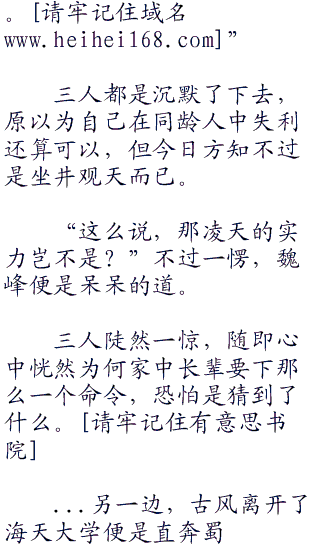 。[请牢记住域名
www.heihei168.com]”
三人都是沉默了下去，
原以为自己在同龄人中失利
还算可以，但今日方知不过
是坐井观天而已。
“这么说，那凌天的实
力岂不是？”不过一愣，魏
峰便是呆呆的道。
三人陡然一惊，随即心
中恍然为何家中长辈要下那
么一个命令，恐怕是猜到了
什么。[请牢记住有意思书
院]
...另一边，古风离开了
海天大学便是直奔蜀